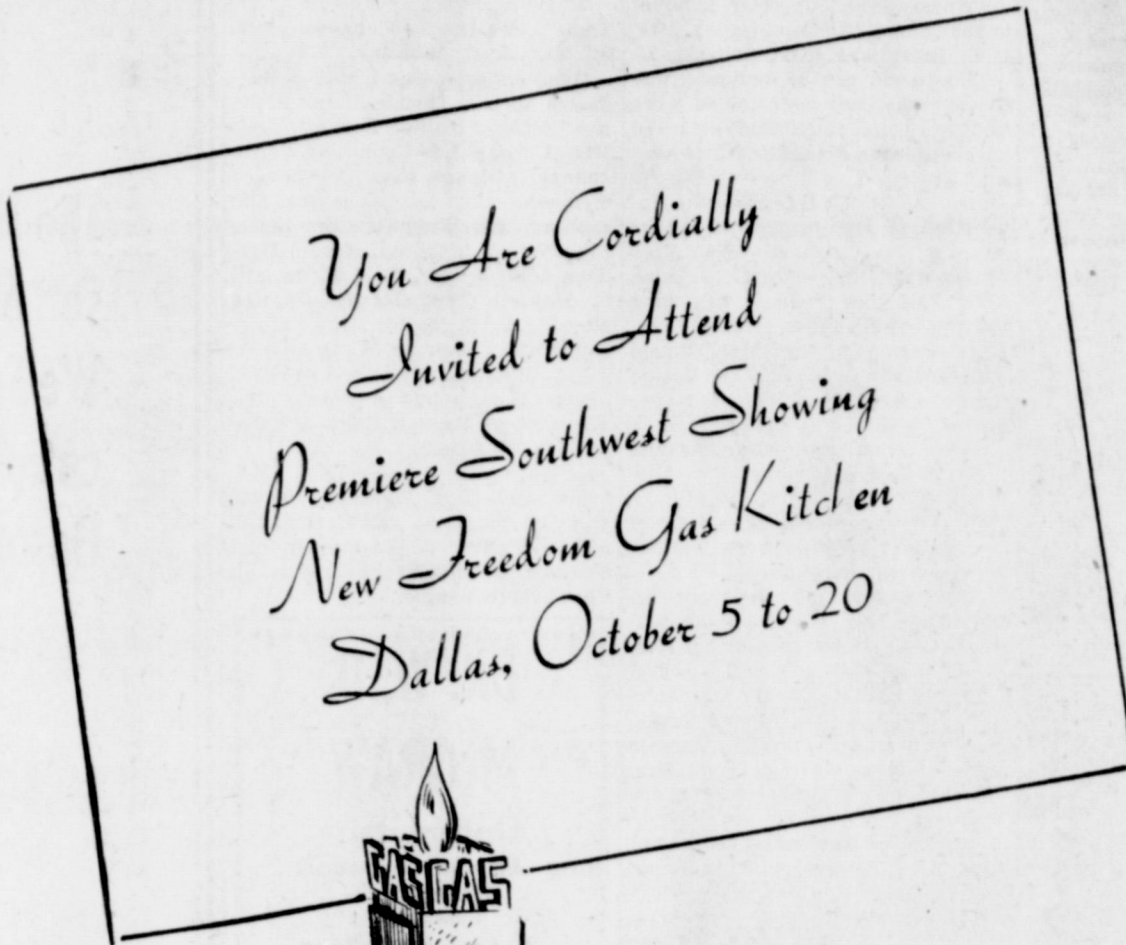 You Are Cordially
Invited to Attend
Premiere Southwest Showing
New Freedom Gas Kitchen
Dallas, October 5 to 20
GAS GAS